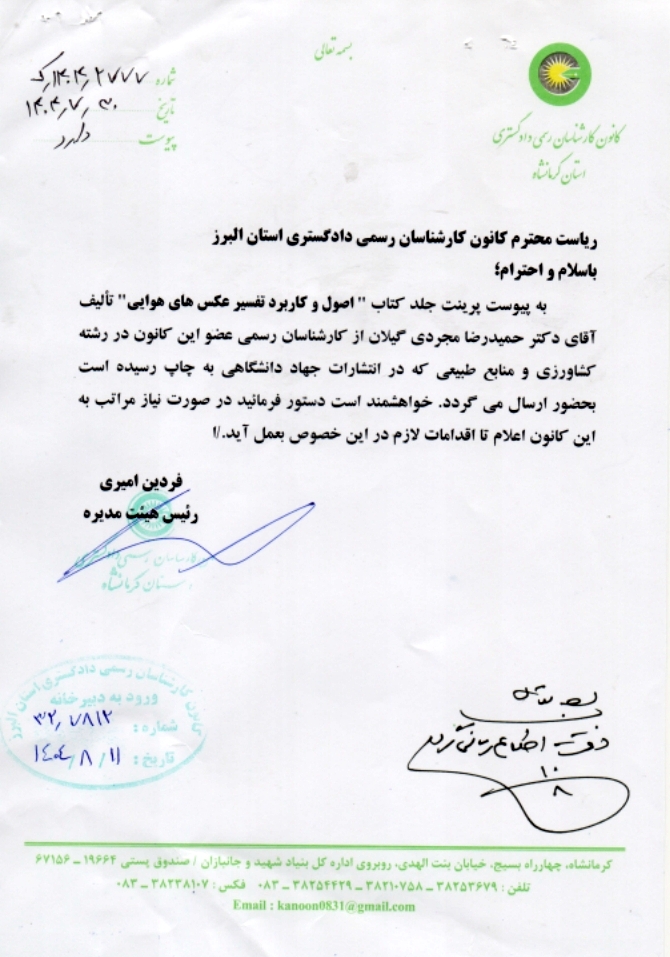 بسمه تعالی
کانون کارشناسان رسمی دادگستری
استان کرمانشاه
شماره ۱۴۰۴٫۲۷۷۷٫ک
تاریخ ۱۴۰۴٫۷٫۳۰
پیوست دارد
ریاست محترم کانون کارشناسان رسمی دادگستری استان البرز
باسلام و احترام؛
به پیوست پرینت جلد کتاب " اصول و کاربرد تفسیر عکس های هوایی" تألیف
آقای دکتر حمیدرضا مجردی گیلان از کارشناسان رسمی عضو این کانون در رشته
کشاورزی و منابع طبیعی که در انتشارات جهاد دانشگاهی به چاپ رسیده است
بحضور ارسال می گردد. خواهشمند است دستور فرمائید در صورت نیاز مراتب به
این کانون اعلام تا اقدامات لازم در این خصوص بعمل آید./ا
فردین امیری
رئیس هیئت مدیره
کارشناسان رسمی دادگستری
استان کرمانشاه
کانون کارشناسان رسمی دادگستری استان البرز
ورود به دبیرخانه
شماره : ۳۲٫۷۸۱۲
تاریخ : ۱۴۰۴/۸/۱۱
اطلاع رسانی
۱۰
۸
کرمانشاه، چهارراه بسیج، خیابان بنت الهدی، روبروی اداره کل بنیاد شهید و جانبازان / صندوق پستی ۱۹۶۶۴ ـ ۶۷۱۵۶
تلفن : ۳۸۲۵۳۶۷۹ ـ ۳۸۲۱۰۷۵۸ ـ ۳۸۲۵۴۴۲۹ ـ ۰۸۳ فکس : ۳۸۲۳۸۱۰۷ ـ ۰۸۳
Email : kanoon0831@gmail.com